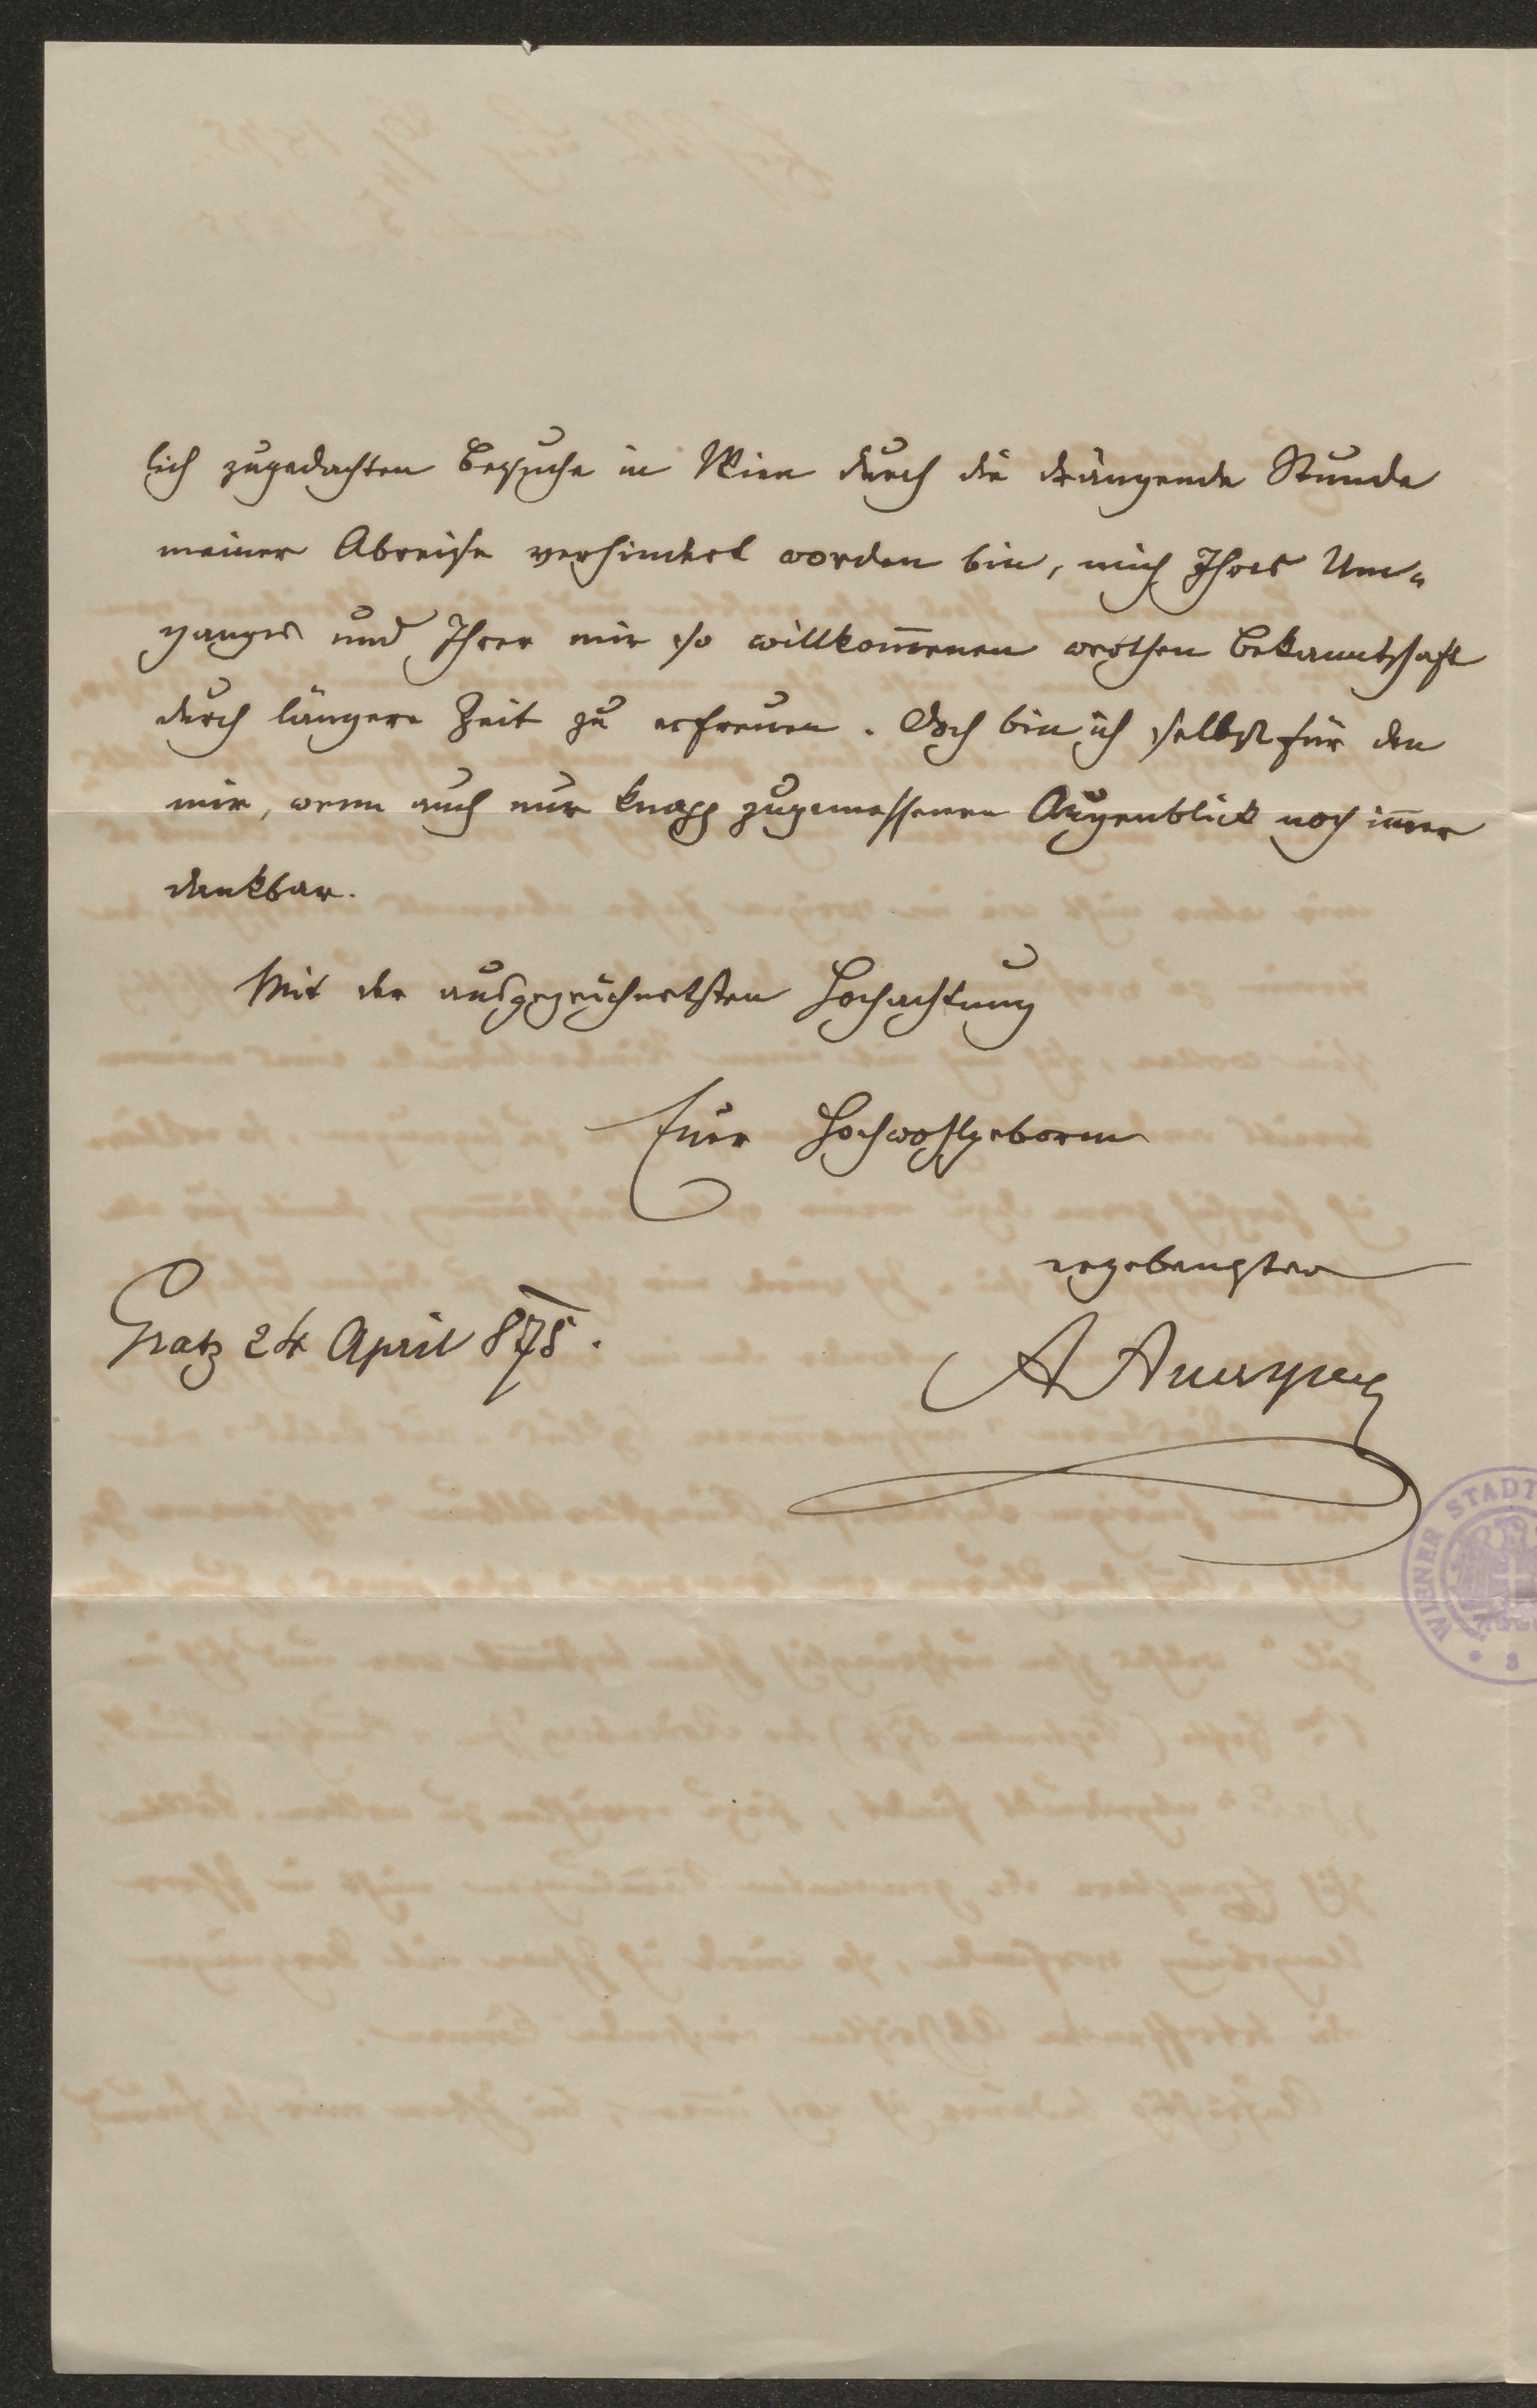 lich zugedachten Besuche in Wien durch die drängende Stunde
meiner Abreise verhindert worden bin, mich Ihres Um-
ganges und Ihrer mir so willkom̅enen werthen Bekanntschaft
durch längere Zeit zu erfreuen. Doch bin ich selbst für den
mir, wenn auch nur knapp zugemessenen Augenblick noch im̅er
dankbar.
Mit der ausgezeichnetsten Hochachtung
Euer Hochwohlgeboren
ergebenster
Gratz 24 April 875.
A Auersperg
WIENER STADT